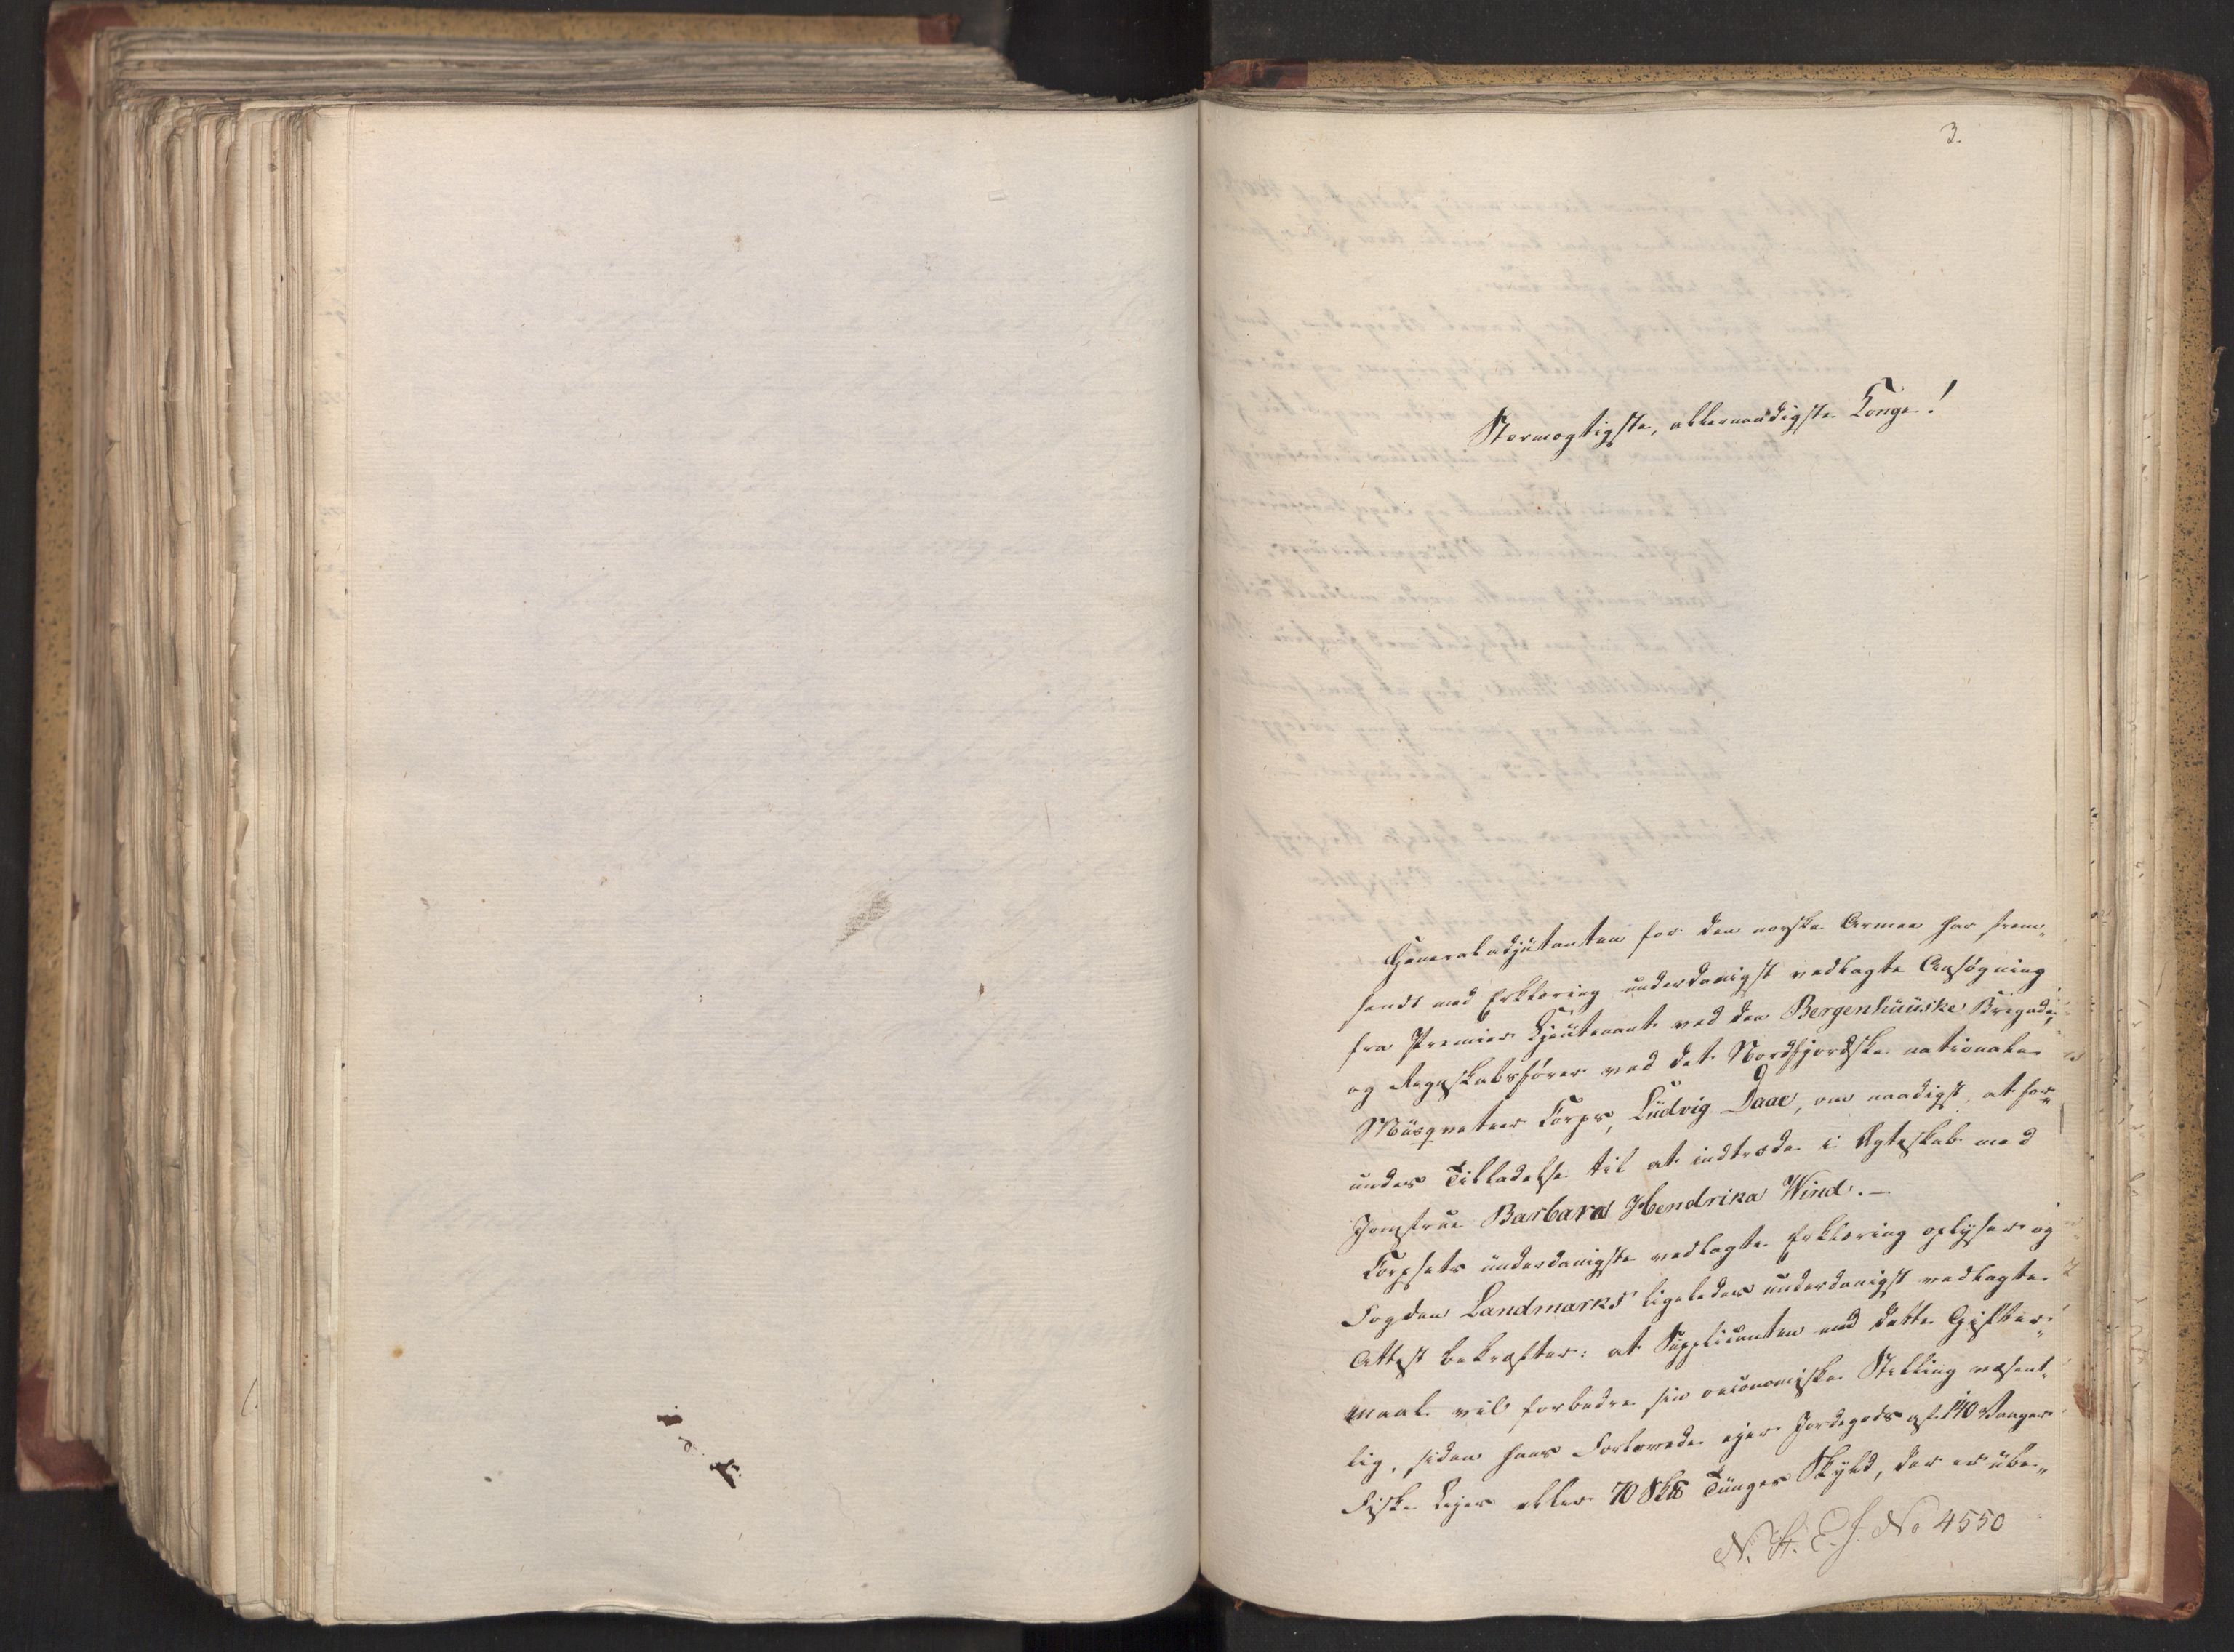 3.
Stormægtigste, allernaadigste Konge!
Generaladjütanten for den norske Armee har frem„
sendt med Erklæring underdanigst vedlagte Ansøgning
fra Premier Lieutenant ved den Bergenhuuske Brigade,
og Regnskabsfører ved det Nordfjordske nationale
Müsqueteer Corps, Ludvig Daae, om naadigst at for„
undes Tilladelse til at indtræde i Ægteskab med
Jomfrue Barbara Hendrika Wind.—
Corpsets underdanigste vedlagte Erklæring oplyser og
Fogden Landmarks ligeledes underdanigst vedlagte
Attest bekræfter: at Supplicanten ved dette Gifter„
maal vil forbedre sin oeconomiske Stilling væsent„
lig, siden hans Forlovede eier Jordegods af 140 Vaager
Fiske Leje eller 70 Skll Tunges Skyld, der er ube„
N. St. E. J. No 4550